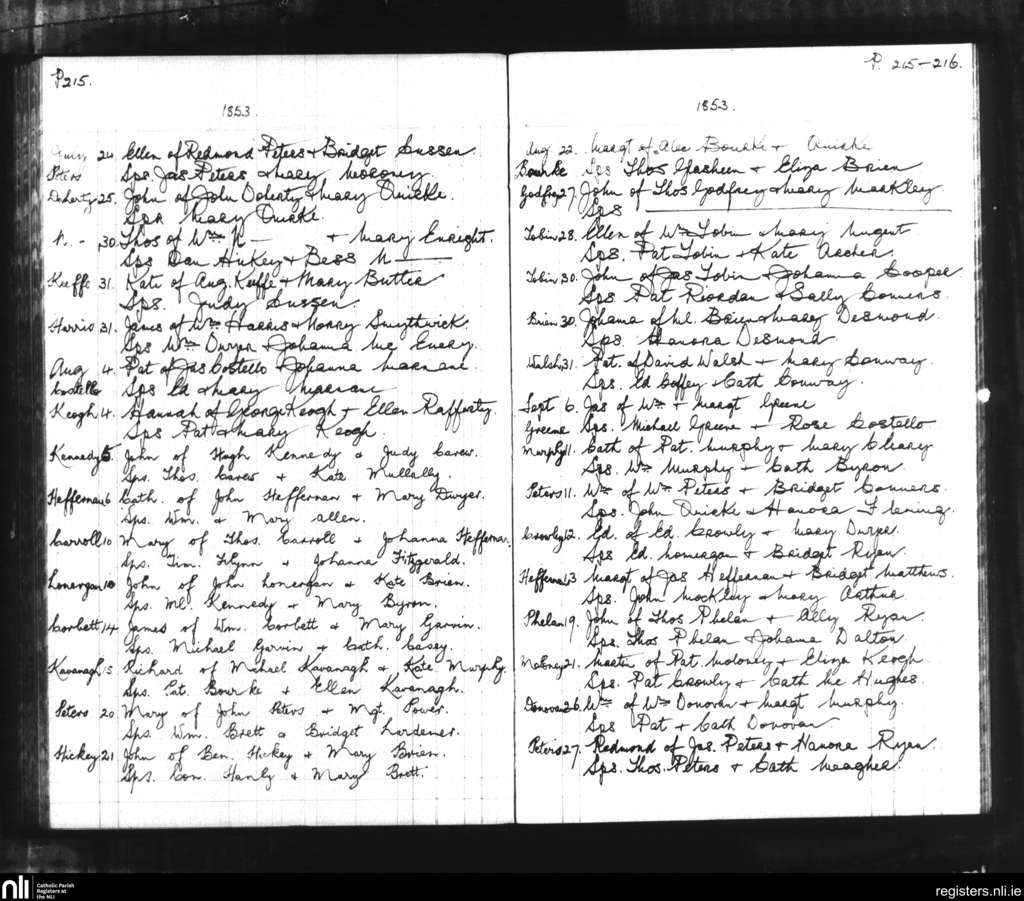 P215.
1853.
July 24 Ellen of Redmond Peters & Bridget Sussen
Peters Sps. Jas Peters & Mary Moroney.
Doherty 25. John of John Doherty & Mary Quirke.
Spr Mary Quirke.
N. - 30. Thos of Wm N — & Mary Enright.
Sps Dan Hukey & Bess N —
Keeffe 31. Kate of Aug. Keeffe & Mary Butter
Sps. Judy Sussen.
Harris 31. James of Wm Harris & Norry Smythwick.
Sps Wm Dwyer & Johanna Mc Enery.
Aug 4. Pat of Jas Costello & Johanna Marnane.
Costello Sps Ed & Mary Marnane
Keogh 4. Hannah of George Keogh & Ellen Rafferty.
Sps Pat & Mary Keogh.
Kennedy 5. John of Hugh Kennedy & Judy Carew.
Sps. Thos. Carew & Kate Mullally.
Heffernan 6 Cath. of John Heffernan & Mary Dwyer.
Sps. Wm. & Mary Allen.
Carroll 10 Mary of Thos. Carroll & Johanna Heffernan.
Sps. Tim. Flynn & Johanna Fitzgerald.
Lonergan 10 John of John Lonergan & Kate Brien.
Sps. Ml. Kennedy & Mary Byron.
Corbett 14 James of Wm. Corbett & Mary Garvin.
Sps. Michael Garvin & Cath. Casey.
Kavanagh 15 Richard of Michael Kavanagh & Kate Murphy.
Sps. Pat. Bourke & Ellen Kavanagh.
Peters 20 Mary of John Peters & Mgt. Power.
Sps. Wm. Brett & Bridget Lardener.
Hickey 21 John of Ben. Hickey & Mary Brien.
Sps. Con. Hanly & Mary Brett.
P. 215-216.
1853.
Aug 22. Margt of Alec Bourke & Quirke
Bourke Sps Thos Gasheen & Eliza Brien
Godfrey 27. John of Thos Godfrey & Mary Mackley
Sps
Tobin 28. Ellen of Wm Tobin & Mary Nugent
Sps. Pat Tobin & Kate Archer.
Tobin 30. John of Jas Tobin & Johanna Cooper
Sps Pat Riordan & Sally Conners.
Brien 30. Johanna of Ml. Brien & Mary Desmond.
Sps. Hanora Desmond
Walsh 31. Pat. of David Walsh & Mary Conway.
Sps. Ed Coffey & Cath Conway.
Sept 6. Jas of Wm & Margt Greene
Greene Sps. Michael Greene & Rose Costello
Murphy 11. Cath of Pat. Murphy & Mary Cleary
Sps. Wm Murphy & Cath Byron.
Peters 11. Wm of Wm Peters & Bridget Conners.
Sps. John Quirke & Hanora Fleming.
Crowly 12. Ed. of Ed. Crowly & Mary Dwyer.
Sps Ed. Lonergan & Bridget Ryan.
Heffernan 13 Margt of Jas Heffernan & Bridget Matthews.
Sps. John Mockley & Mary Arthur
Phelan 19. John of Thos Phelan & Ally Ryan
Sps. Thos Phelan & Johanna Dalton.
Moloney 21. Martin of Pat. Moloney & Eliza Keogh
Sps. Pat Crowly & Cath Mc Hughes.
Donovan 26. Wm of Wm Donovan & Margt Murphy.
Sps Pat & Cath Donovan
Peters 27. Redmond of Jas. Peters & Hanora Ryan.
Sps. Thos. Peters & Cath Meagher.
nli
Catholic Parish
Registers at
the NLI
registers.nli.ie